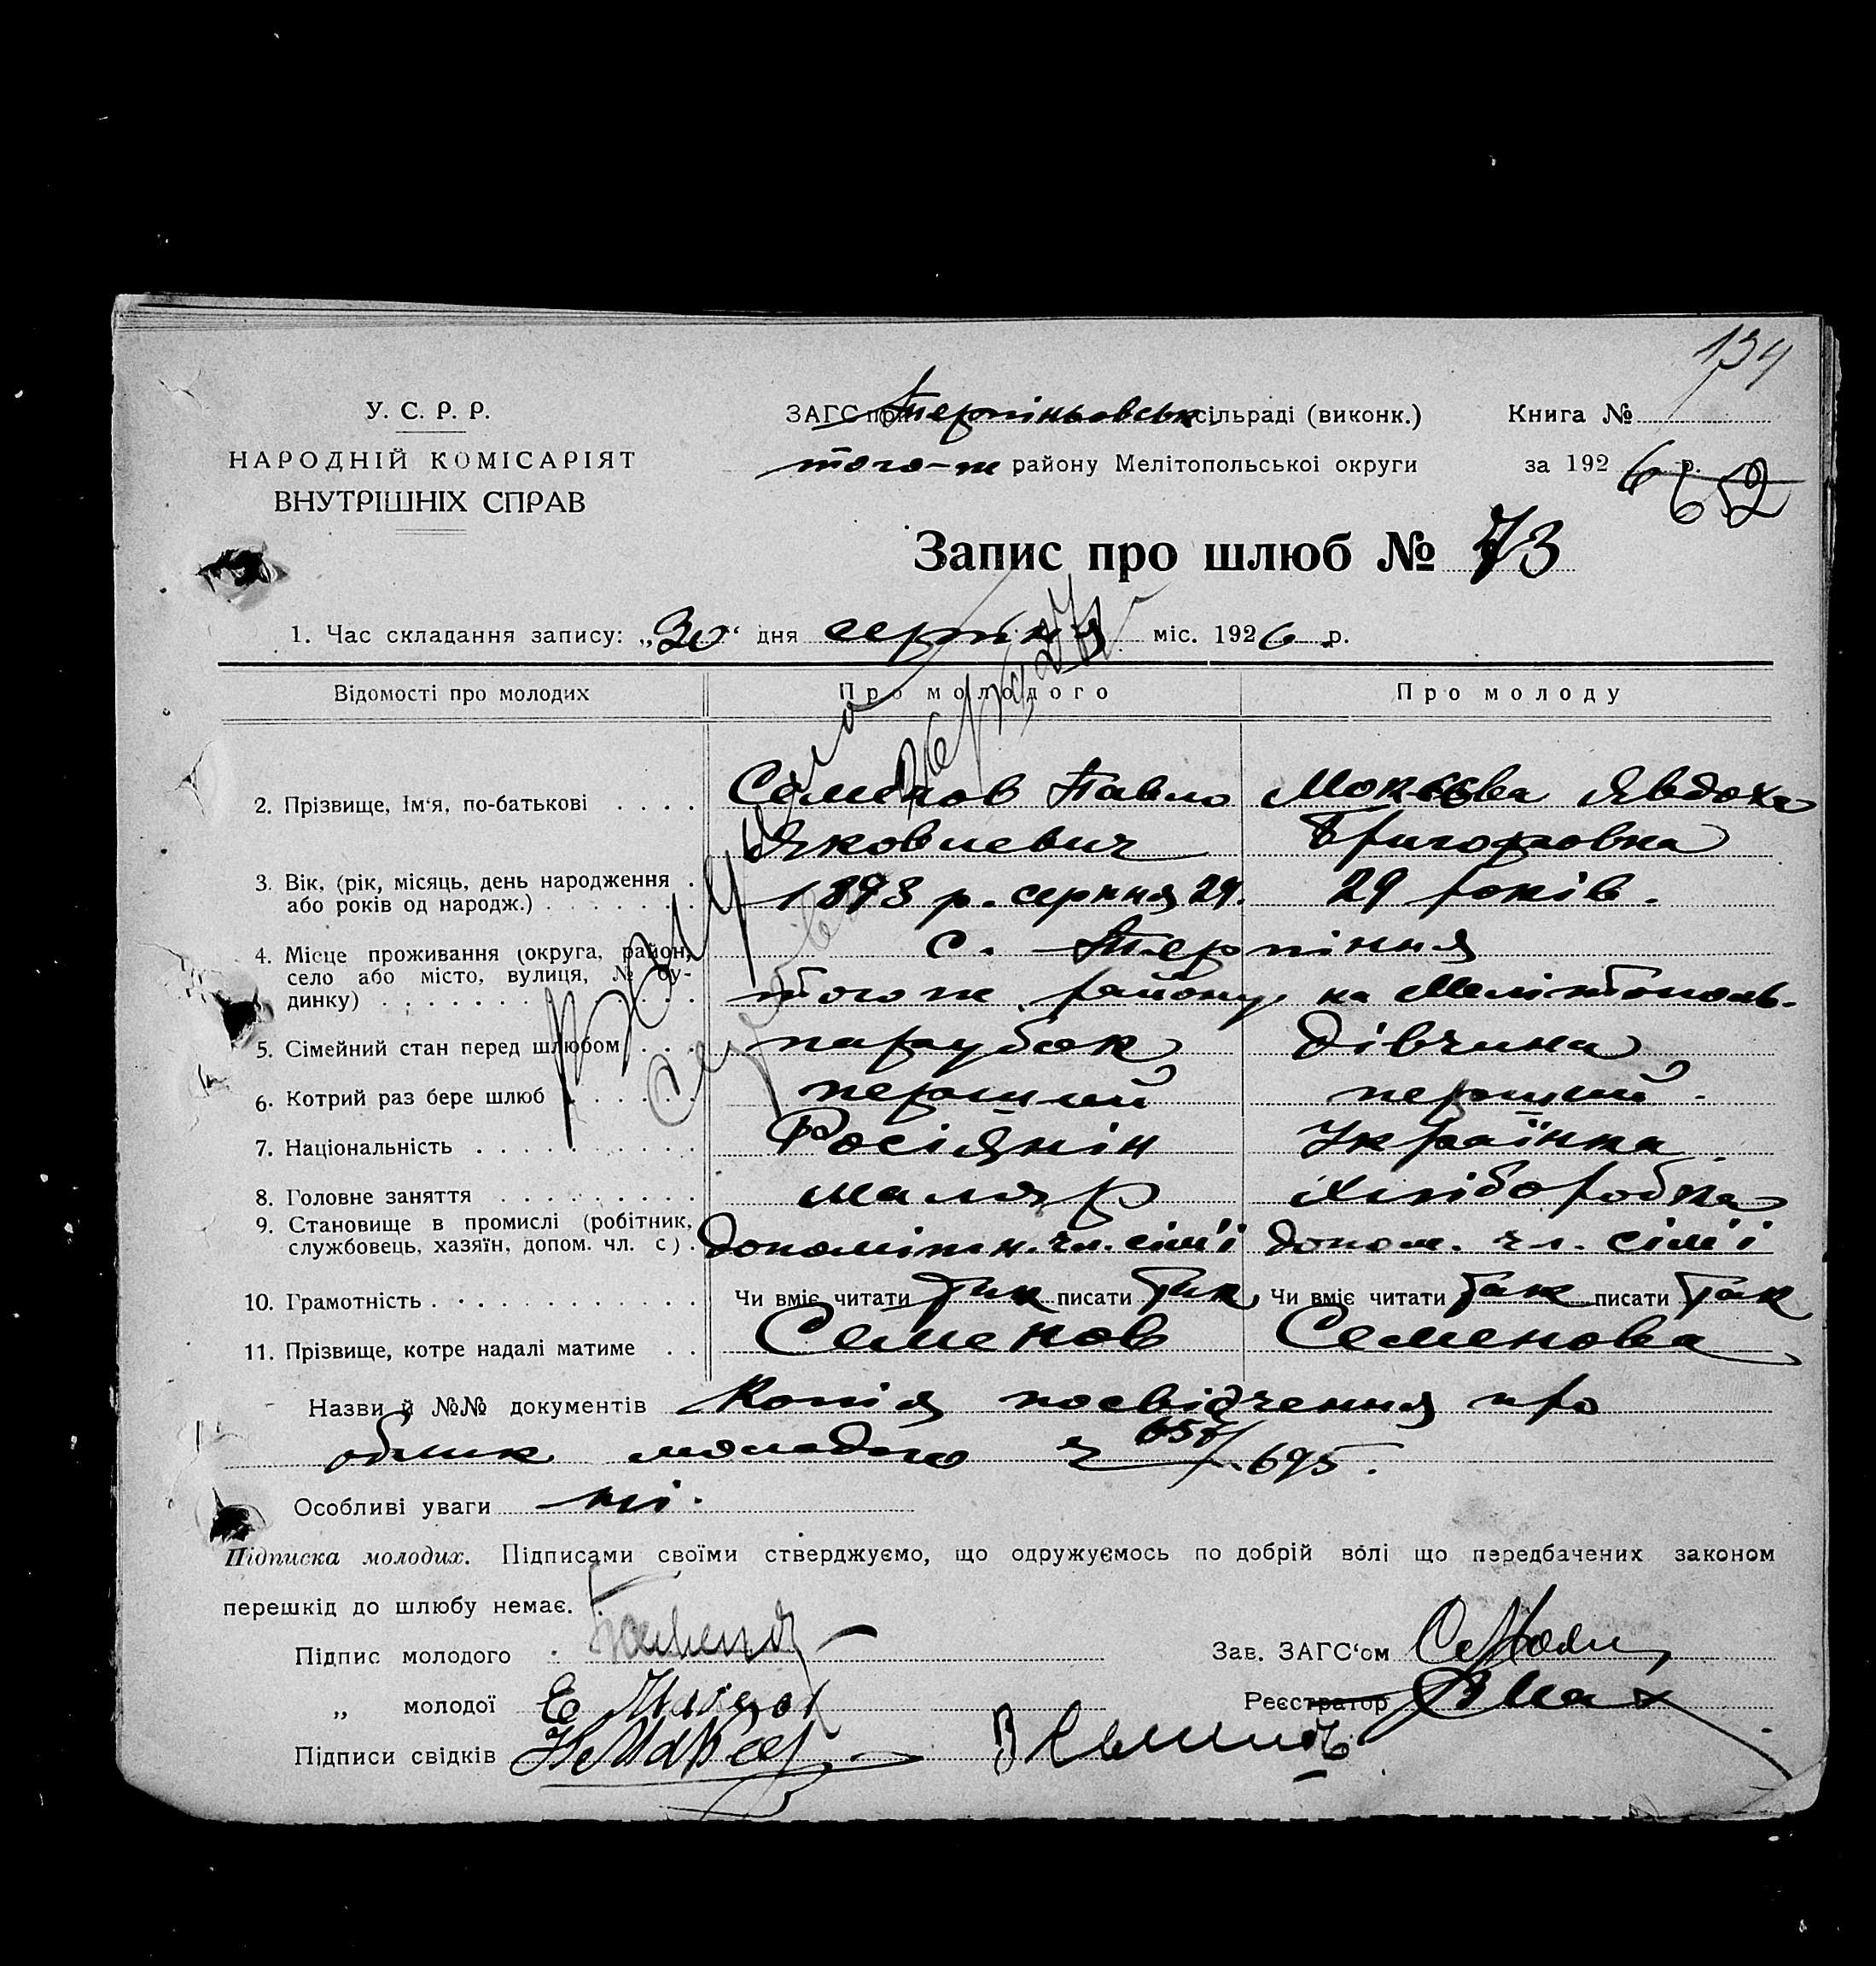 134
У. С. Р. Р.
НАРОДНІЙ КОМІСАРІЯТ
ВНУТРІШНІХ СПРАВ
ЗАГС при Терпіньовськ. сільраді (виконк.)
того-ж району Мелітопольської округи
Книга №
за 1926 р.
62
Запис про шлюб № 73
1. Час складання запису: „30“ дня серпня міс. 1926 р.
Відомості про молодих Про молодого Про молоду
2. Прізвище, Ім‘я, по-батькові Семенов Павло Явдоха
Яковлевич Григоровна
3. Вік, (рік, місяць, день народження 1898 р. серпня 29. 29 років.
або років од народж.)
4. Місце проживання (округа, район, с. Терпіння
село або місто, вулиця, № бу-
динку) того ж району, на Мелітополь.
5. Сімейний стан перед шлюбом парубок дівчина
6. Котрий раз бере шлюб перший перший.
7. Національність Росіянін Українка.
8. Головне заняття маляр Хліборобка
9. Становище в промислі (робітник,
службовець, хазяїн, допом. чл. с). допоміжн. чл. сім'ї допом. чл. сім'ї
10. Грамотність Чи вміє читати так писати так Чи вміє читати так писати так
11. Прізвище, котре надалі матиме Семенов Семенова
Назви й №№ документів Копія посвідчення про
облик молодого ч 695.
Особливі уваги ні.
Підписка молодих. Підписами своїми стверджуємо, що одружуємось по добрій волі що передбачених законом
перешкід до шлюбу немає.
Підпис молодого
Зав. ЗАГС‘ом
„ молодої Е
Реєстратор
Підписи свідків